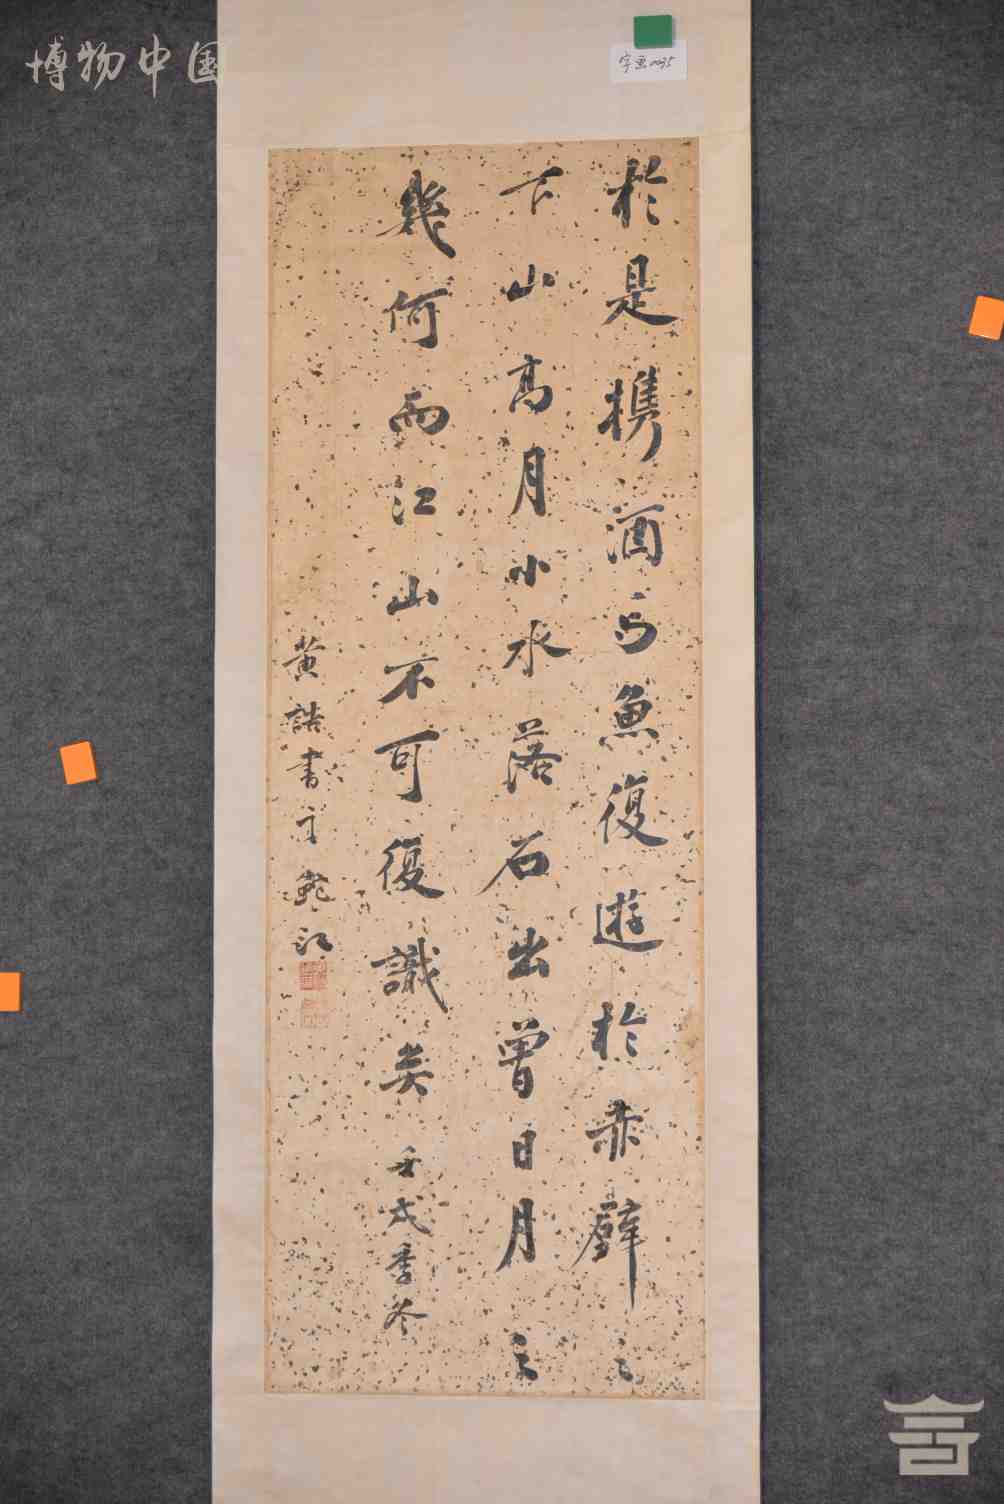 博物中国
字画0035
於是携酒与魚復遊於赤壁之
下山高月小水落石出曽日月之
幾何而江山不可復識矣 壬戌季冬
黄誥書于鮀江